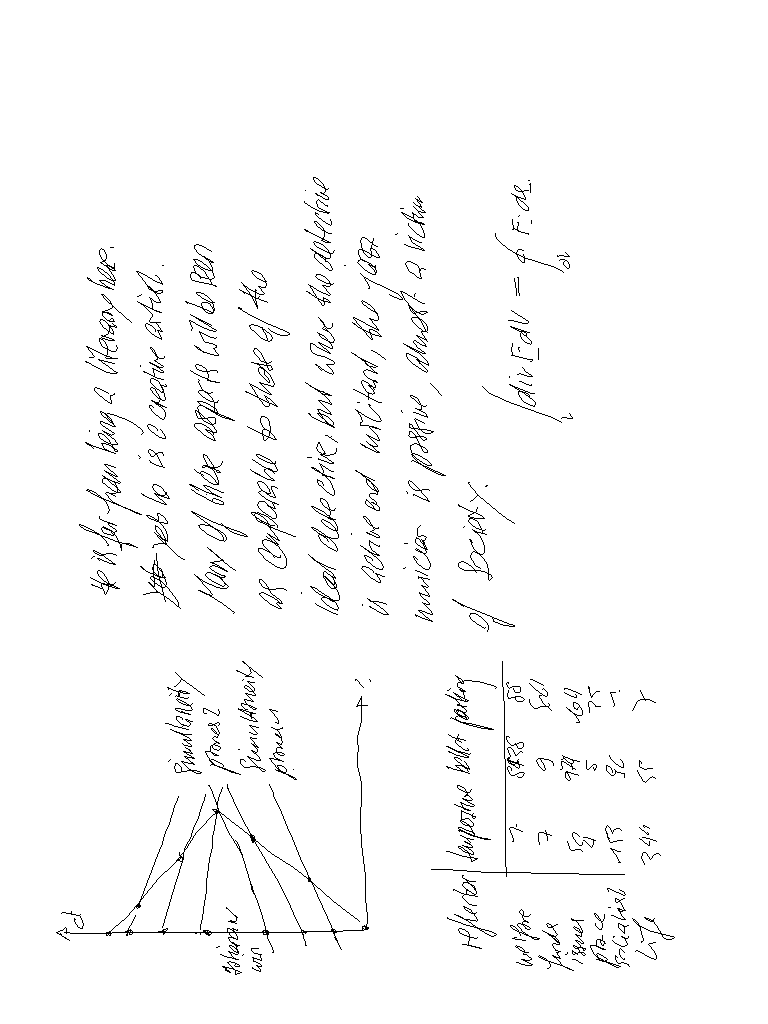 He is far from being a literary hero.
yet he is a creative artist.
Many of these aspects will be seen
as comparable to those of the
ideal detective, but where the detective
is active and militant, the jazz
musician is passive, almost a victim
of society.
∫ div F dV = ∮ F · ds.
ct
Simultaneity
planes 2
Simultaneity
reflector temperature ballot parking
welfare
funds 7 9
issues
place 5 75
socialist 153 96
life 344 55